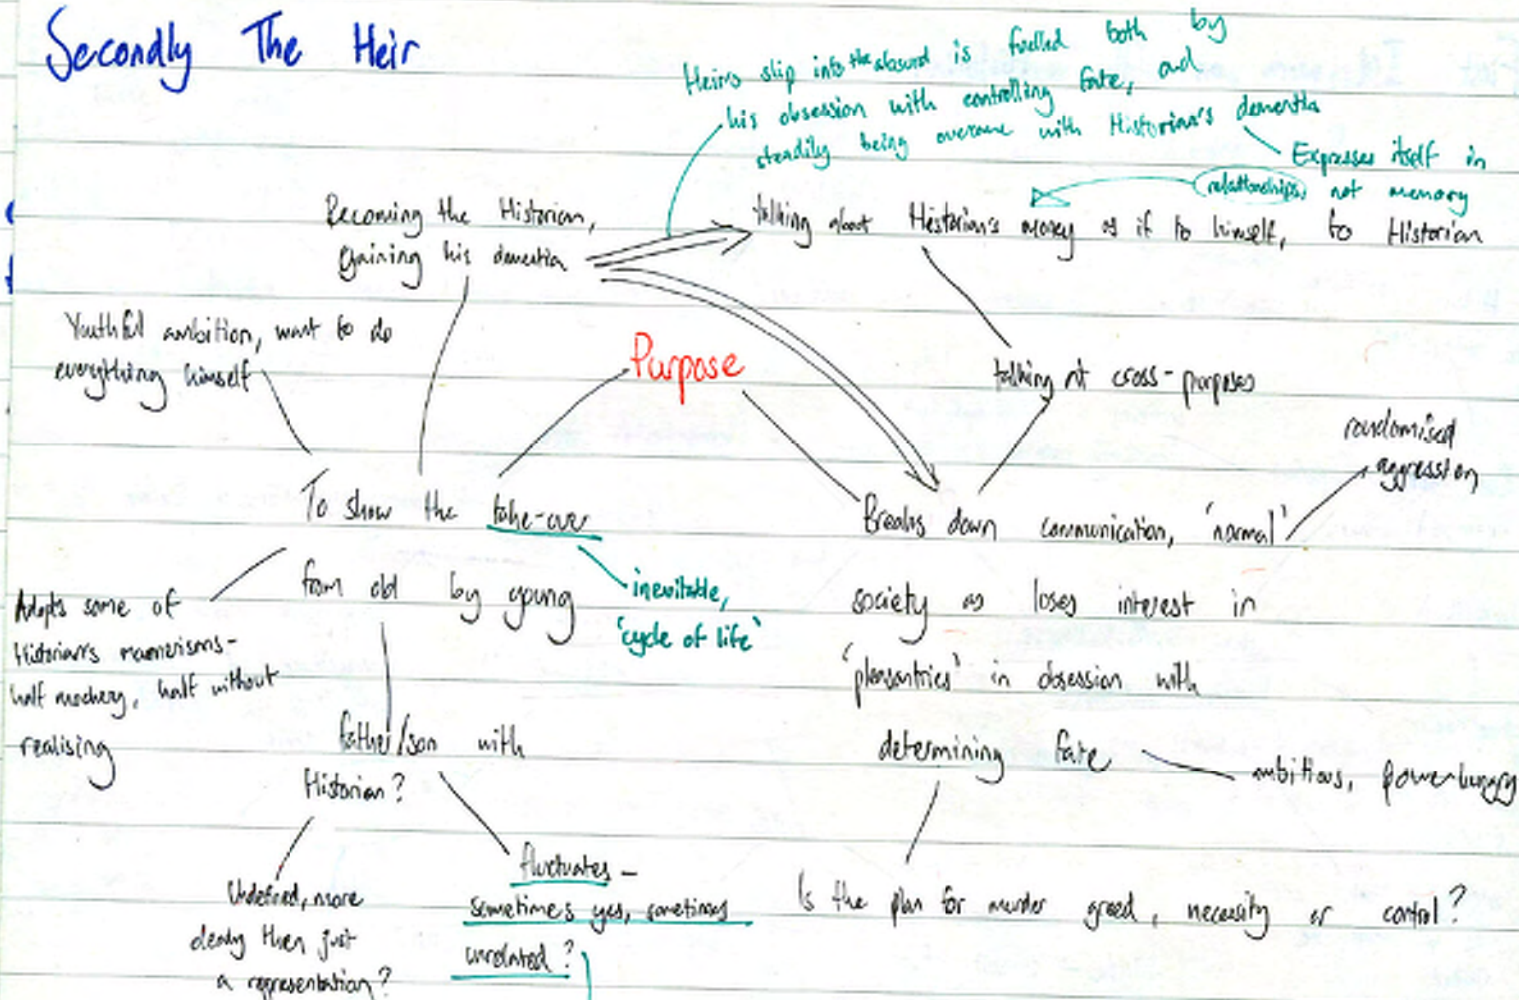 Secondly The Heir
Heirs slip into the absurd is fuelled both by
his obsession with controlling fate, and
steadily being overcome with Historian's dementia
Expresses itself in
relationships, not memory
Becoming the Historian,
gaining his dementia
talking about Historian's money as if to himself, to Historian
Youthful ambition, want to do
everything himself
Purpose
talking at cross-purposes
randomised
aggression
To show the take-over
from old by young
inevitable,
'cycle of life'
Breaks down communication, 'normal'
society as loses interest in
'pleasantries' in obsession with
determining fate
ambitious, powerhungry
Adopts some of
Historian's mannerisms-
half mockery, half without
realising
father/son with
Historian?
fluctuates -
sometimes yes, sometimes
unrelated?
Undefined, more
clearly then just
a representation?
Is the plan for murder greed, necessity or control?